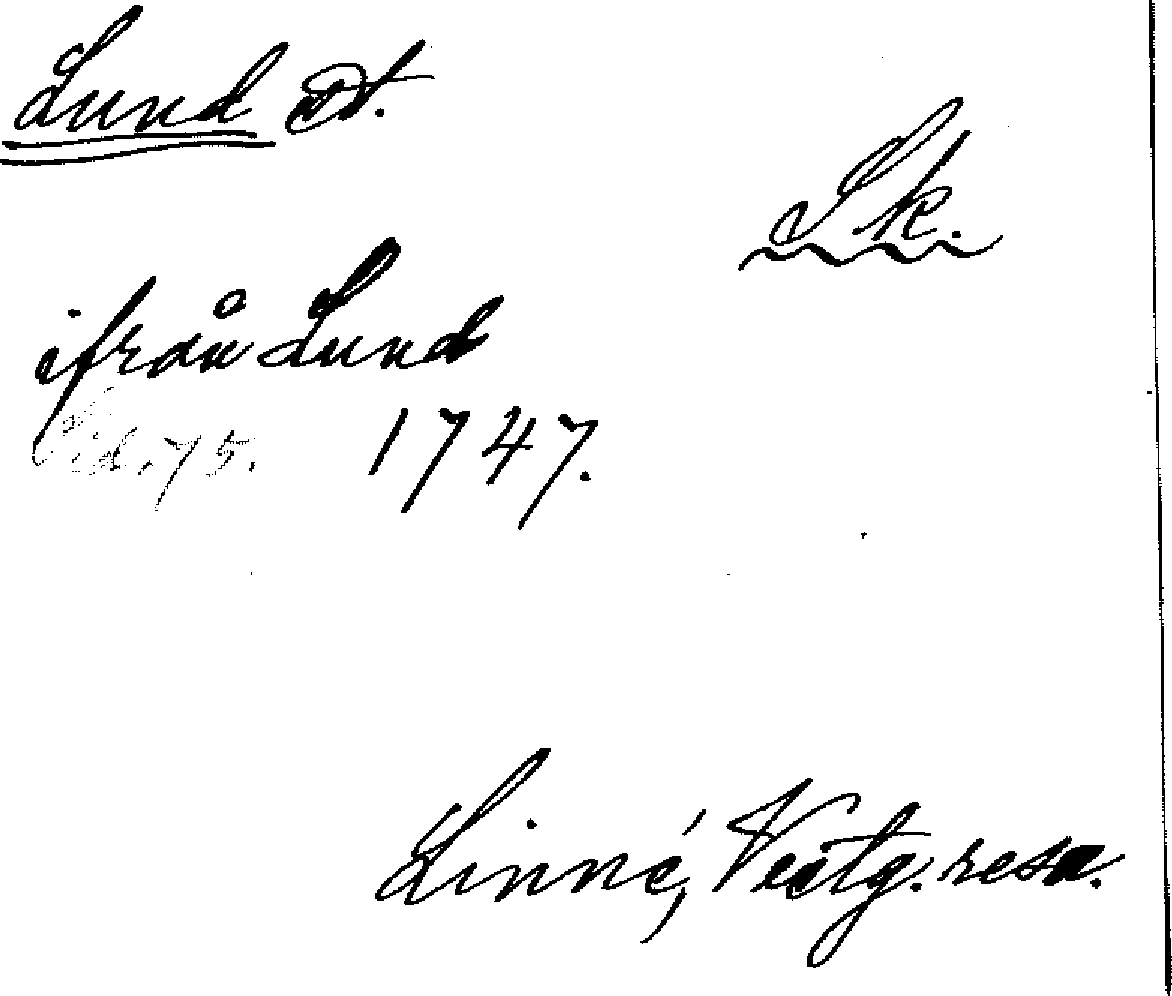 Lund st.
Sk.
ifrån Lund
Sid. 75. 1747.
Linné, Vestg. resa.